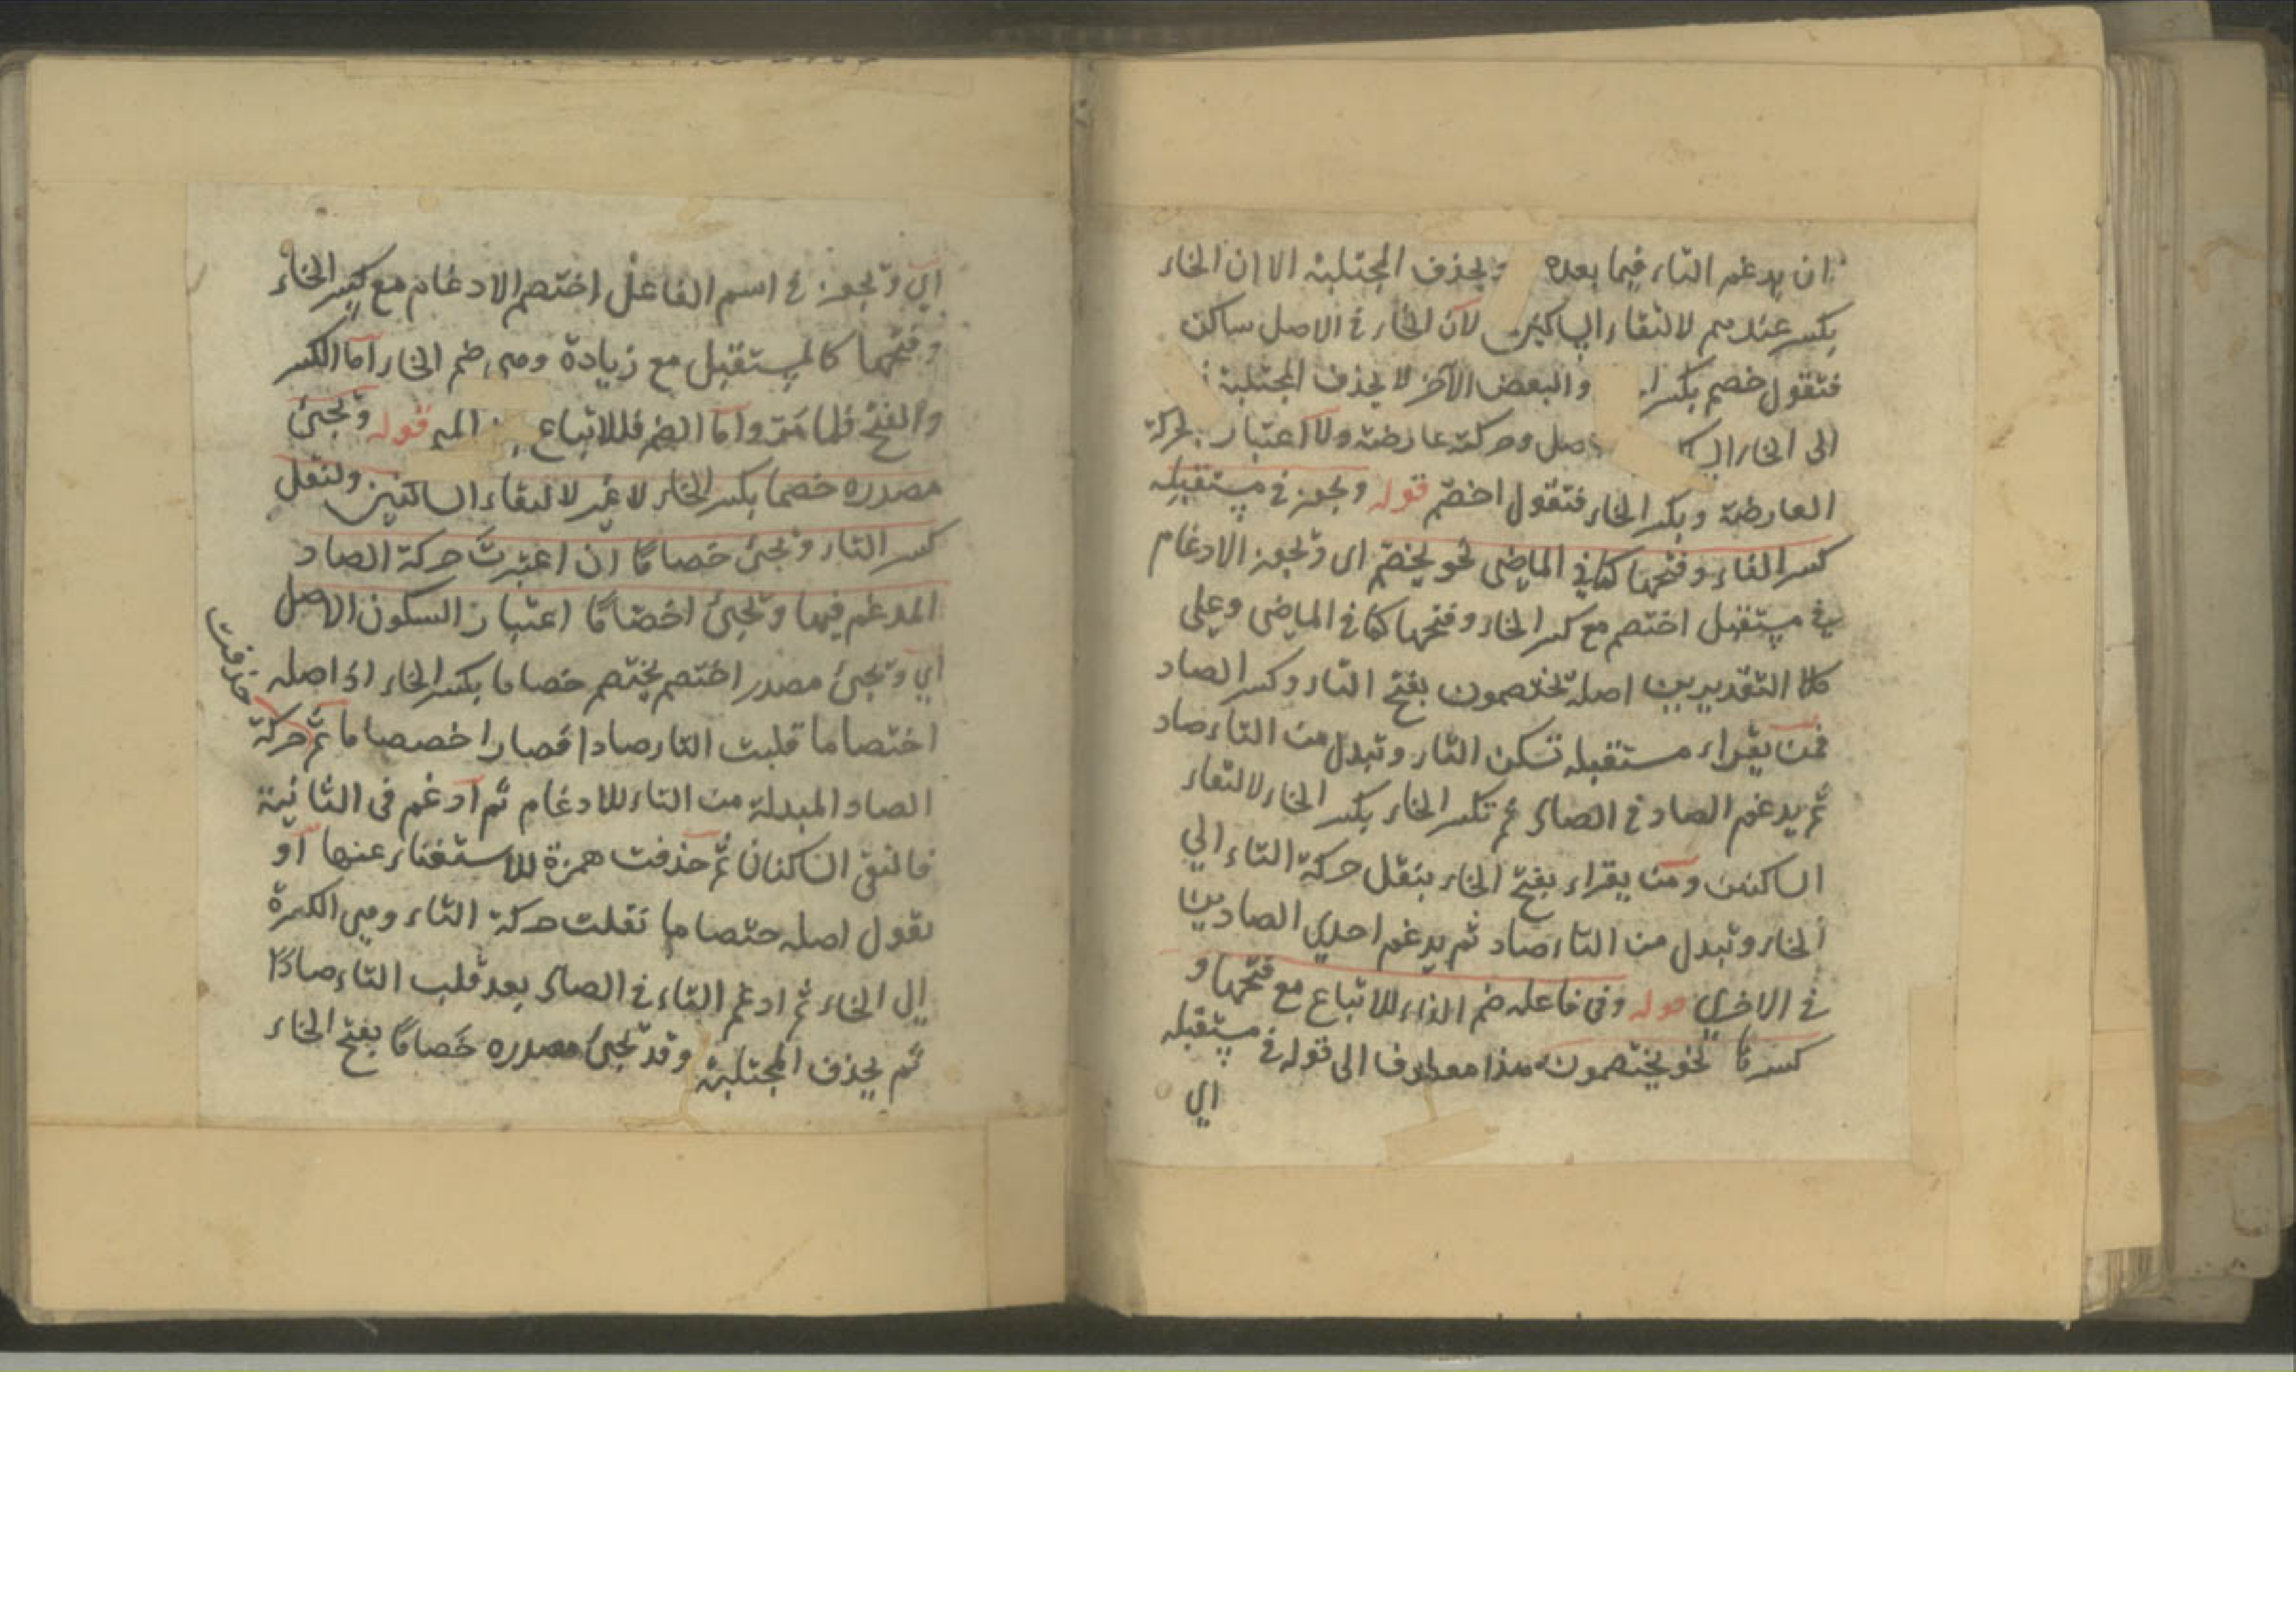 ان يدغم التاء فيما بعده يحذف المجتلبة الا ان الخاء
بكسر عندهم لالتقاء الساكنين لان الخاء في الاصل ساكن
فتقول خصم بكسر والبعض الآخر لا يحذف المجتلبة
الى الخاء وحركة عارضة ولا اعتبار بحركة
العارضة وبكسر الخاء فتقول اخصم قوله ويجوز في مستقبله
كسر الفاء وفتحها كما في الماضي نحو يخصم اى ويجوز الادغام
في مستقبل اختصم مع كسر الخاء وفتحها كما في الماضي وعلى
كلا التقديرين اصله تختصمون بفتح التاء وكسر الصاد
فمن يقراء مستقبله تسكن التاء وتبدل من التاء صاد
ثم يدغم الصاد في الصاد ثم تكسر الخاء بكسر الخاء لالتقاء
الساكنين ومن يقراء بفتح الخاء بنقل حركة التاء الي
الخاء وتبدل من التاء صاد ثم يدغم احدي الصادين
في الاخري قوله وفي فاعله ضم الفاء للاتباع مع فتحها و
كسرها نحو يختصمون هذا معطوف الى قوله في مستقبله
اي
اي ويجوز في اسم الفاعل اختصم الادغام مع كسر الخاء
وفتحها كالمستقبل مع زيادة وهي ضم الخاء اما الكسر
والفتح فلما مر واما الضم فللاتباع الميم قوله ويجئ
مصدره خصما بكسر الخاء لا غير لالتقاء الساكنين ولنقل
كسر التاء ويجئ خصاما ان اعتبرت حركة الصاد
المدغم فيها ويجئ اخصاما اعتبار السكون الاصل
اي ويجئ مصدر اختصم يختصم خصاما بكسر الخاء اذ اصله
اختصاما قلبت التاء صادا فصار اخصصاما ثم حركة
حذفت
الصاد المبدلة من التاء للادغام ثم ادغم في الثانية
فالتقى الساكنان ثم حذفت همزة للاستغناء عنها او
نقول اصله حتصاما نقلت حركة التاء وهي الكسرة
الى الخاء ثم ادغم التاء في الصاد بعد قلب التاء صادا
ثم يحذف المجتلبة وقد يجئ مصدره خصاما بفتح الخاء